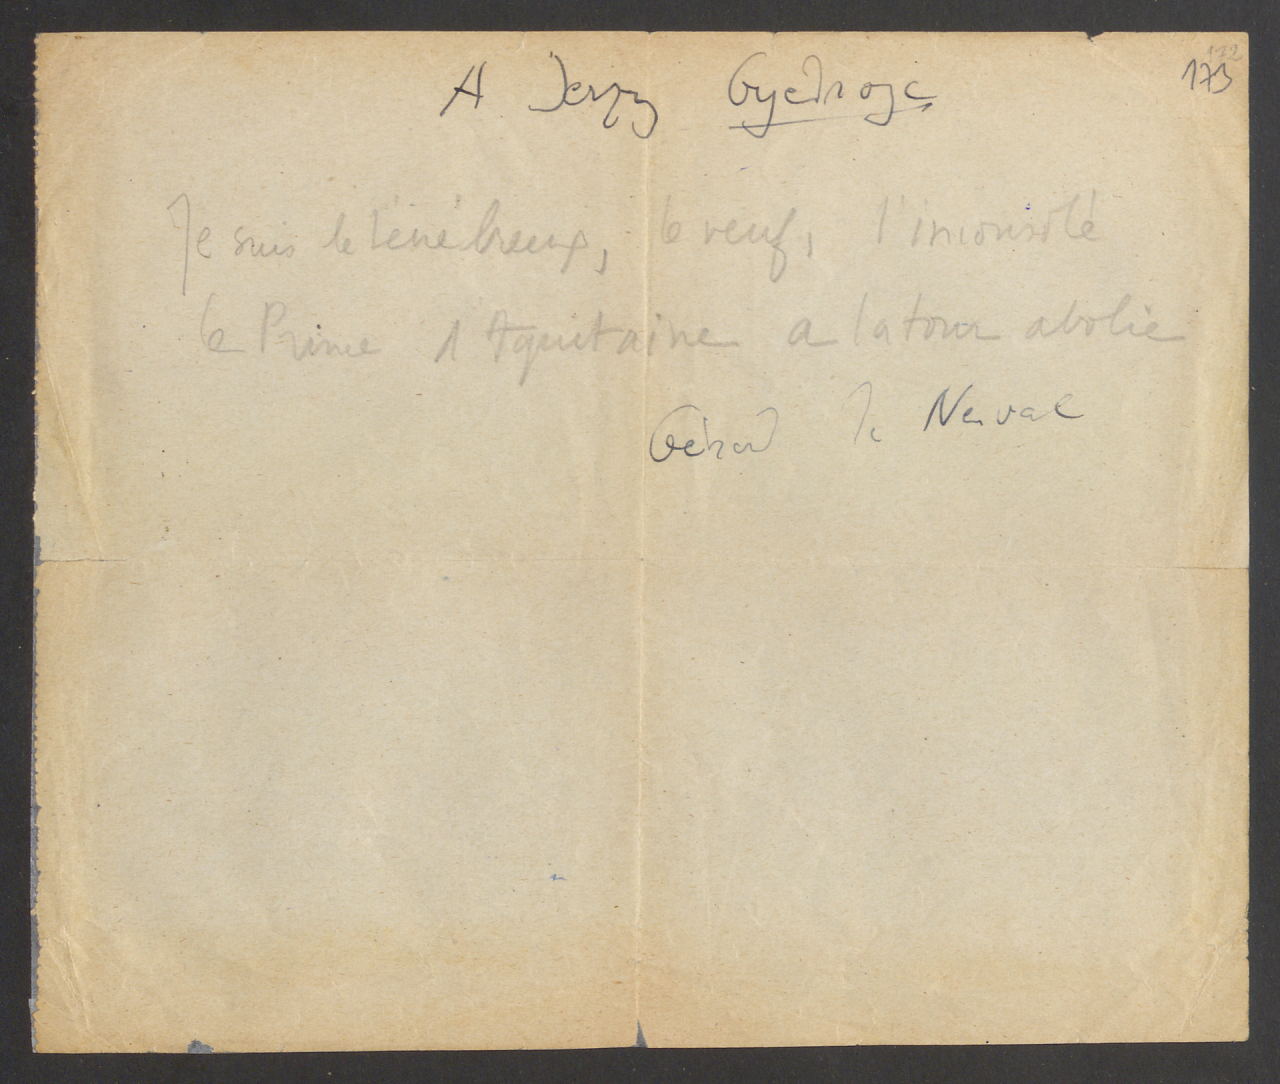 172
173
A Jerzy Gyedroyc
Je suis le ténébreux, le veuf, l'inconsolé
le Prince d'Aquitaine a la tour abolie
Gérard de Nerval